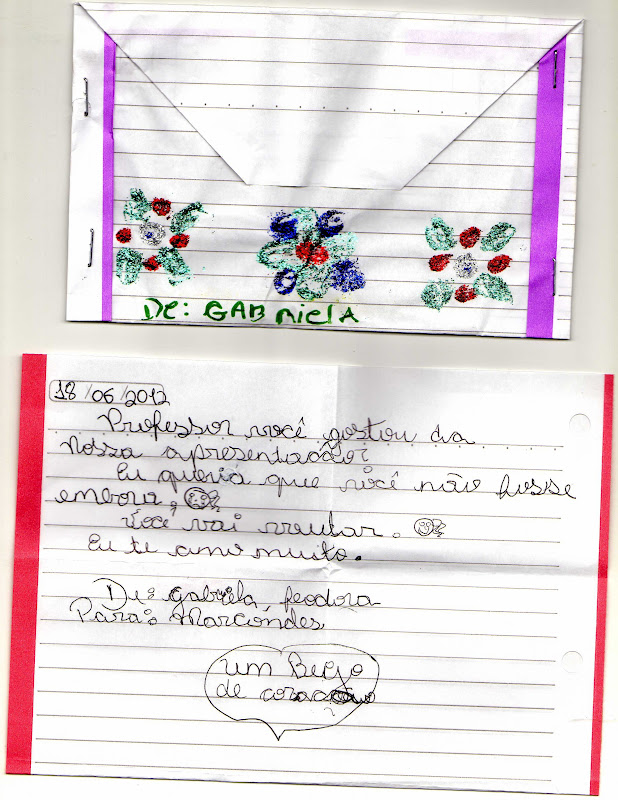 De: GABRIELA
18/06/2012
Professor você gostou da
nossa apresentação?
Eu queria que você não fosse
embora,
Você vai voutar.
Eu te amo muito.
De: gabriela, feodora
Para: Marcondes
um Beijo
de coração